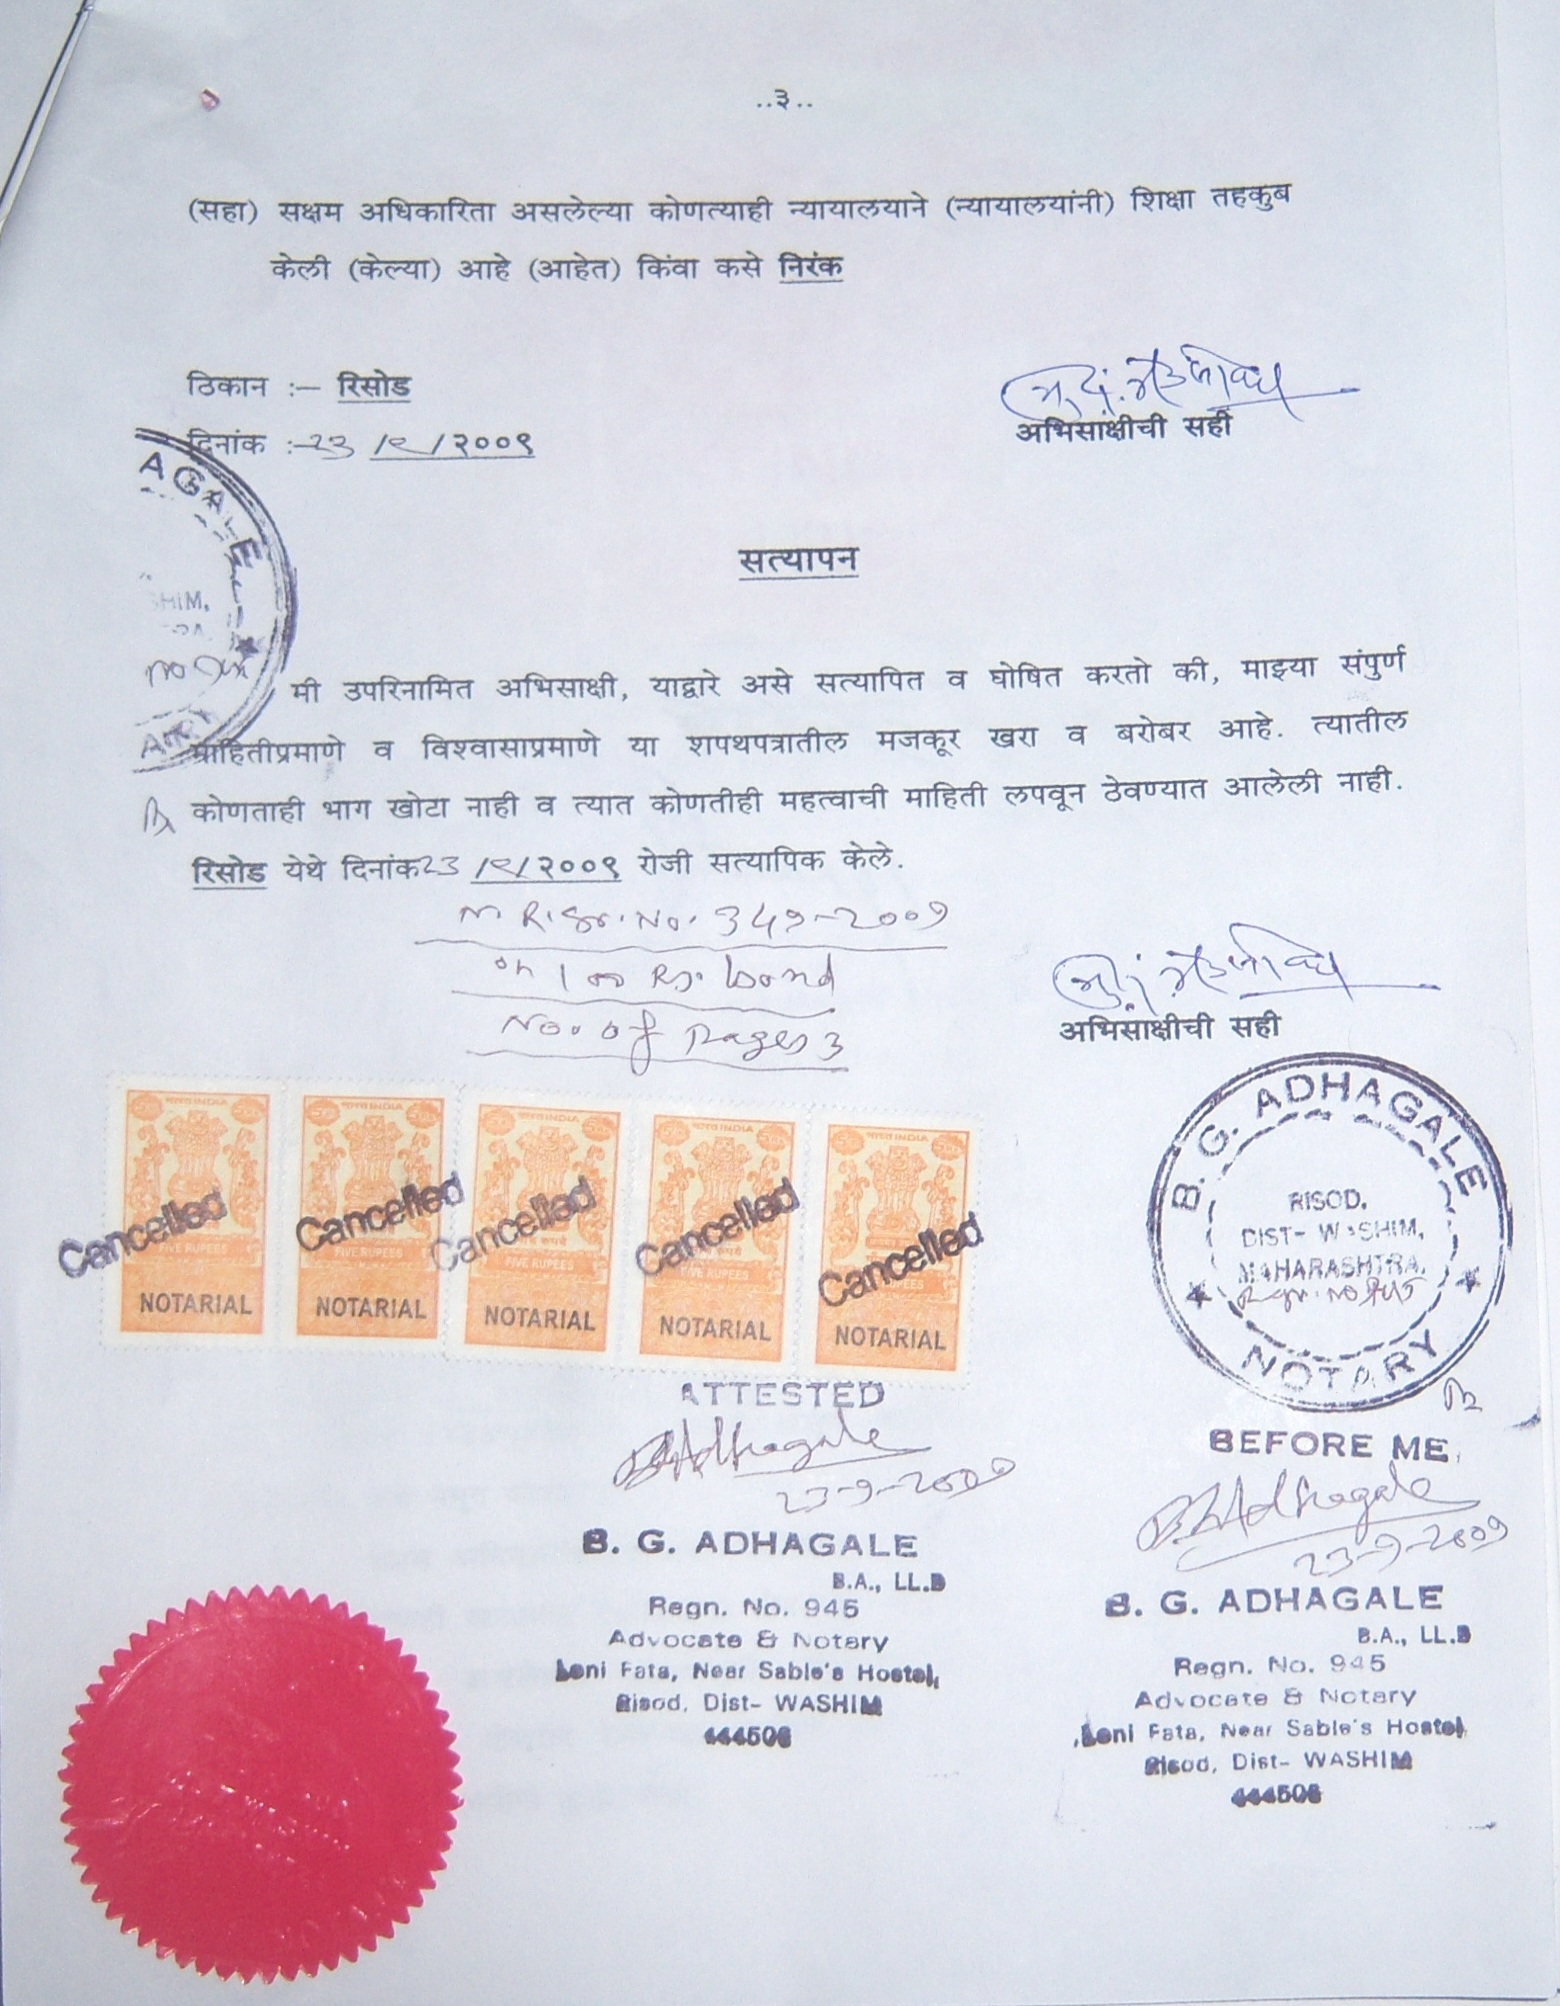 ..३..
(सहा) सक्षम अधिकारिता असलेल्या कोणत्याही न्यायालयाने (न्यायालयांनी) शिक्षा तहकुब
केली (केल्या) आहे (आहेत) किंवा कसे निरंक
ठिकान :– रिसोड
दिनांक :–23 /९/२००९
अभिसाक्षीची सही
AGALE
SHIM,
सत्यापन
मी उपरिनामित अभिसाक्षी, याद्वारे असे सत्यापित व घोषित करतो की, माझ्या संपुर्ण
माहितीप्रमाणे व विश्वासाप्रमाणे या शपथपत्रातील मजकूर खरा व बरोबर आहे. त्यातील
कोणताही भाग खोटा नाही व त्यात कोणतीही महत्वाची माहिती लपवून ठेवण्यात आलेली नाही.
रिसोड येथे दिनांक23 /९/२००९ रोजी सत्यापिक केले.
N. R. Sr. No. 349-2009
on 100 Rs. bond
No. of Pages 3
अभिसाक्षीची सही
भारत INDIA
भारत INDIA
भारत INDIA
भारत INDIA
भारत INDIA
Cancelled
Cancelled
Cancelled
Cancelled
Cancelled
FIVE RUPEES
FIVE RUPEES
FIVE RUPEES
FIVE RUPEES
RUPEES
NOTARIAL
NOTARIAL
NOTARIAL
NOTARIAL
NOTARIAL
B. G. ADHAGALE
RISOD.
DIST- WASHIM,
MAHARASHTRA.
Regn. No 945
NOTARY
ATTESTED
BGAdhagale
23-9-2009
B. G. ADHAGALE
B.A., LL.B
Regn. No. 945
Advocate & Notary
Loni Fata, Near Sable's Hostel,
Risod, Dist- WASHIM
444506
BEFORE ME,
BGAdhagale
23-9-2009
B. G. ADHAGALE
B.A., LL.B
Regn. No. 945
Advocate & Notary
Loni Fata, Near Sable's Hostel,
Risod, Dist- WASHIM
444506